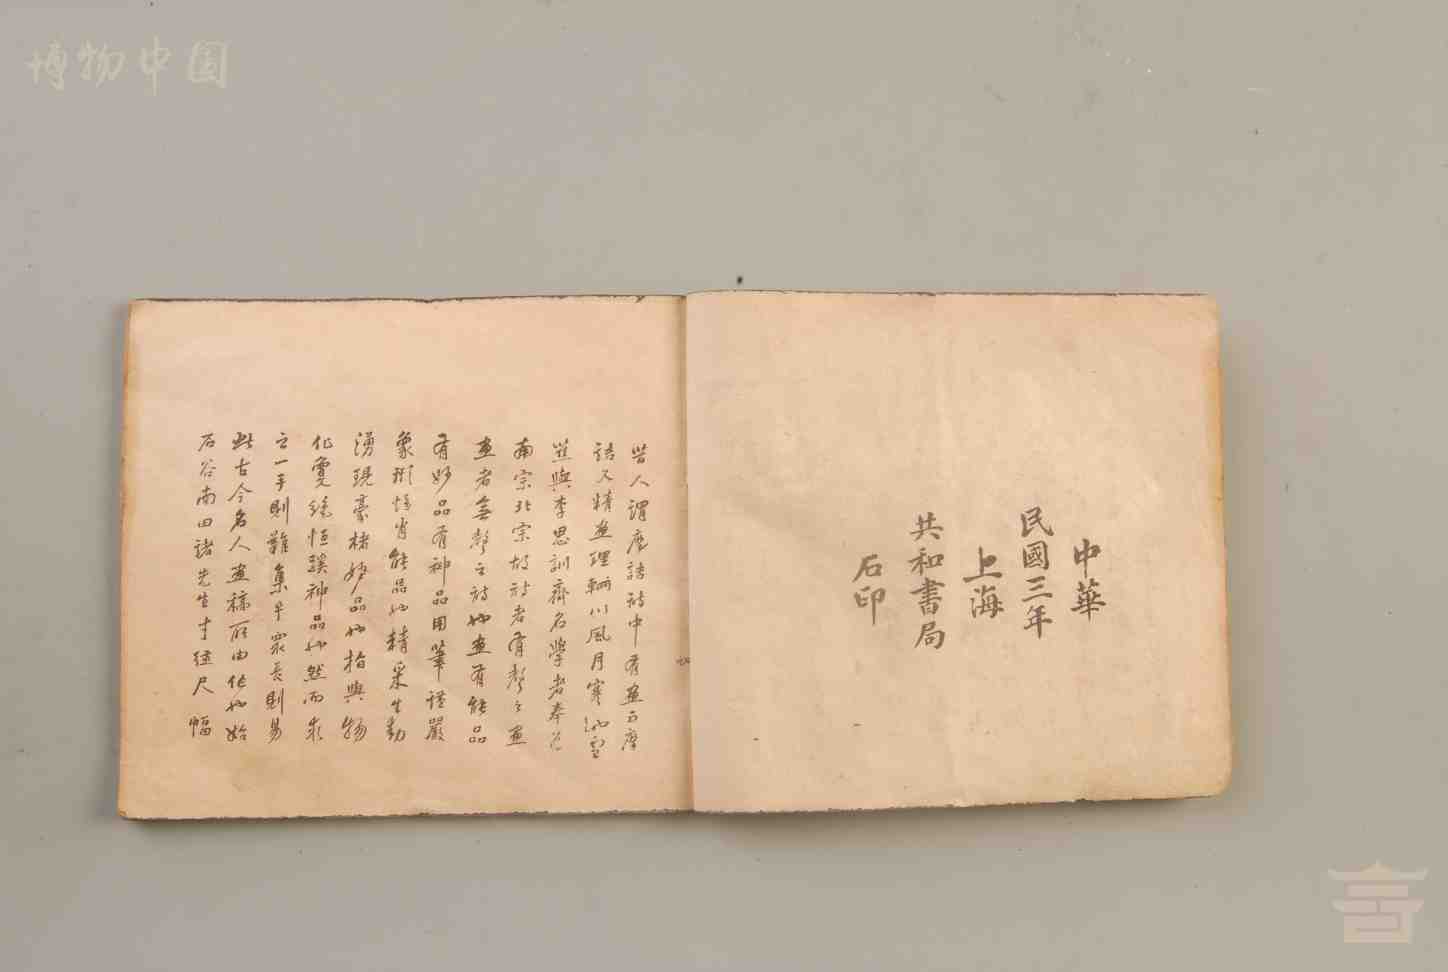 博物中国
中華
民國三年
上海
共和書局
石印
昔人謂摩詰詩中有畫而摩
詰又精畫理輞川風月寒江雪
與李思訓齊名學者奉為
南宗北宗故詩者有聲之畫
畫者無聲之詩也畫有能品
有妙品有神品用筆謹嚴
象形惟肖能品也精采生動
湧現豪楮妙品也指與物
化敻絕恒蹊神品也然而求
之一手則難集乎眾長則易
此古今名人畫稿所由作也始
石谷南田諸先生寸縑尺幅